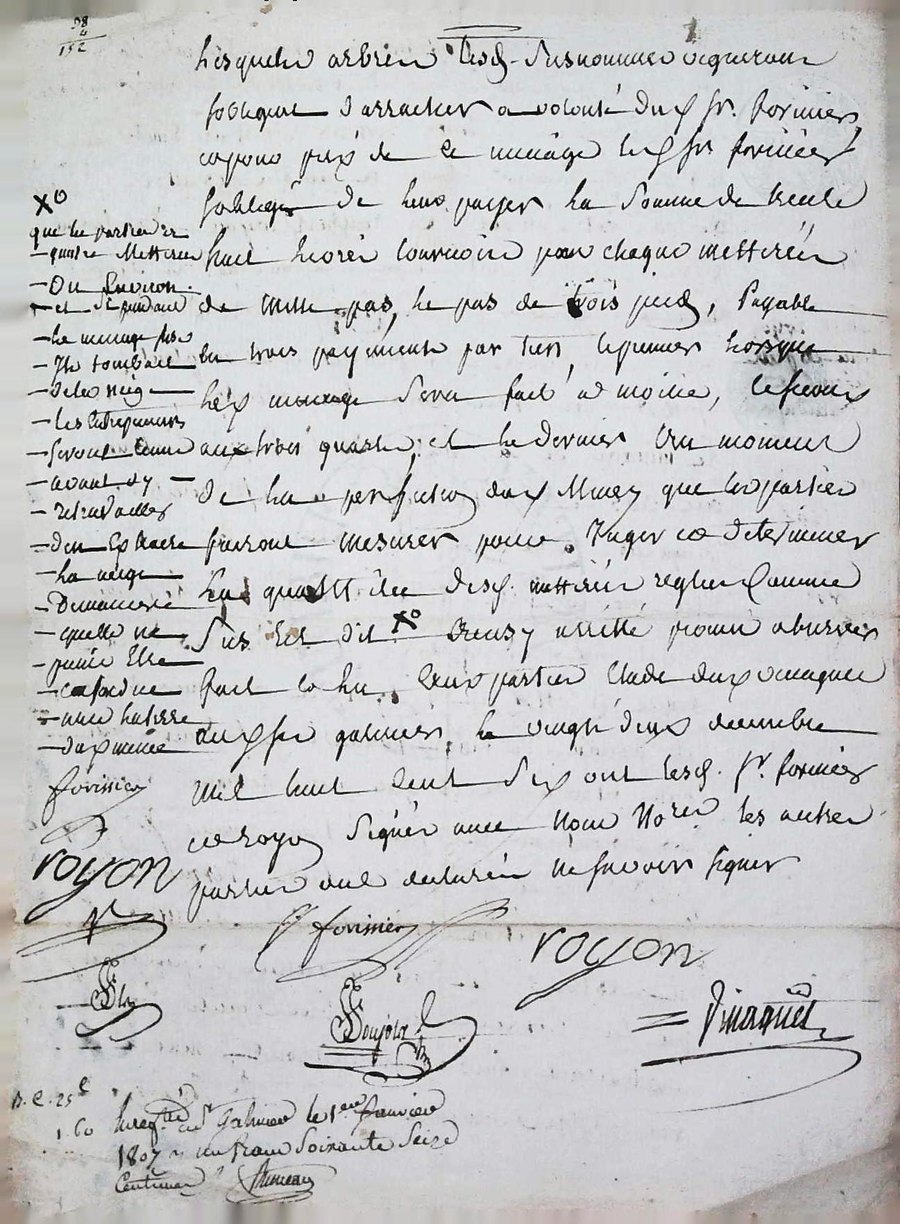 98
4
152
lesquels arbres lesd. susnommés
sobligent d'arracher a volonté dud. sr. forissier
et pour prix de ce minage led. sr. forissier
soblige de leur payer la somme de trente
huit livres tournois pour chaque mettérée
de mille pas, le pas de trois pieds, payable
en trois payments par tiers, le premier lorsque
led. minage sera fait a moitié, le second
aux trois quarts, et le dernier au moment
de la perfection dud. minage que les parties
feront mesurer pour juger et déterminer
la quantité desd. mettérées réglée comme
sus est dit Xo
fait et lu aux parties etude dud.
aud. sr galmier, le vingt deux decembre
mil huit cent six ont lesd. sr. forissier
et royon signés avec nous Nore les autres
parties ont declarés ne savoir signer
Xo
que les parties
quatre Mettérées
ou Environ.
et si pendant
le minage fise
Il tombait
de la neige
les Entrepreneurs
seront tenus
avant d'y
retravailler
d'en Extraire
la neige
De maniere
quelle ne
puisse Etre
confondue
avec la terre
dud. minage
forissier
royon
forissier
royon
B. C. 25c
1.60
Enregtré a St Galmier le 1er janvier
1807 r un franc soixante seize
Centimes